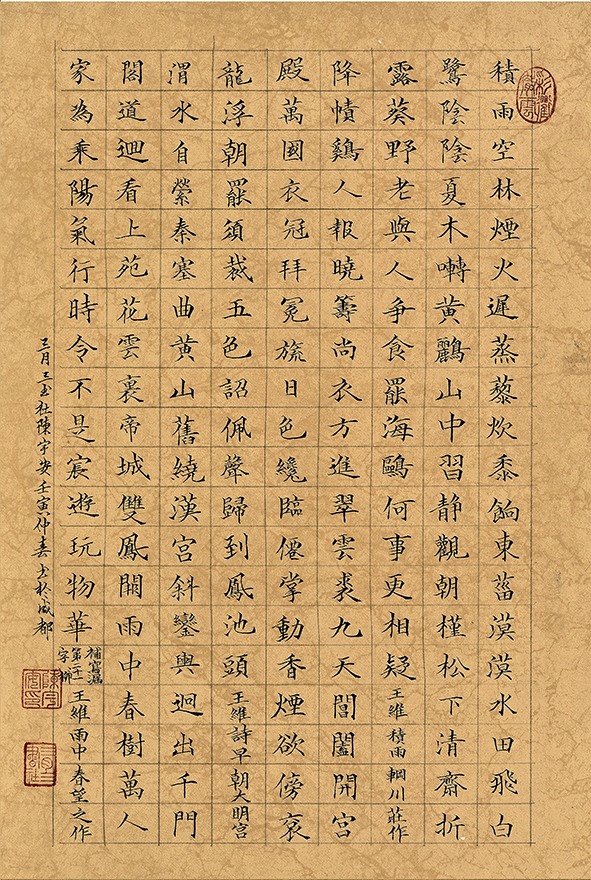 積雨空林煙火遲蒸藜炊黍餉東菑漠漠水田飛白
鷺陰陰夏木囀黃鸝山中習静觀朝槿松下清齋折
露葵野老與人爭食罷海鷗何事更相疑王維積雨輞川莊作
降幘鷄人報曉籌尚衣方進翠雲裘九天閶闔開宮
殿萬國衣冠拜冕旒日色纔臨僊掌動香煙欲傍袞
龍浮朝罷須裁五色詔佩聲歸到鳳池頭王維詩早朝大明宮
渭水自縈秦塞曲黃山舊繞漢宮斜鑾輿迥出千門
閣道迴看上苑花雲裏帝城雙鳳闕雨中春樹萬人
家為乘陽氣行時令不是宸遊玩物華補寫漏第二十一字柳王維雨中春望之作
三月三书社陳宇安壬寅仲春书於成都